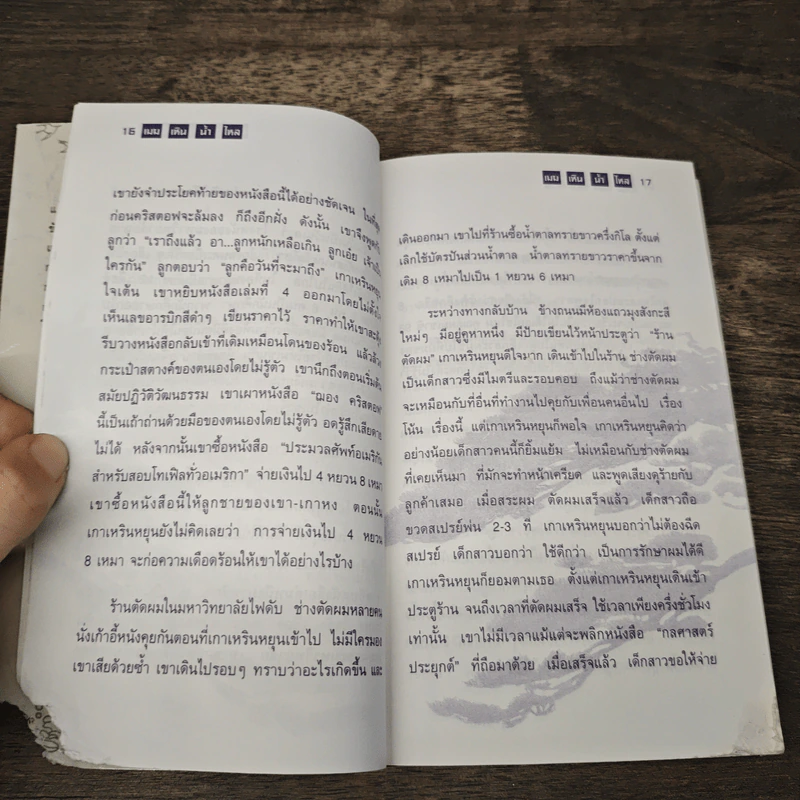 16 เมฆ เหิน น้ำ ไหล
เขายังจำประโยคท้ายของหนังสือนี้ได้อย่างชัดเจน ในที่สุด
ก่อนคริสตอฟจะล้มลง ก็ถึงอีกฝั่ง ดังนั้น เขาจึงพูดกับ
ลูกว่า “เราถึงแล้ว อา...ลูกหนักเหลือเกิน ลูกเอ๋ย เจ้าเป็น
ใครกัน” ลูกตอบว่า “ลูกคือวันที่จะมาถึง” เกาเหรินหยุน
ใจเต้น เขาหยิบหนังสือเล่มที่ 4 ออกมาโดยไม่ตั้งใจ
เห็นเลขอารบิกสีดำๆ เขียนราคาไว้ ราคาทำให้เขาสะดุ้ง
รีบวางหนังสือกลับเข้าที่เดิมเหมือนโดนของร้อน แล้วล้วง
กระเป๋าสตางค์ของตนเองโดยไม่รู้ตัว เขานึกถึงตอนเริ่มต้น
สมัยปฏิวัติวัฒนธรรม เขาเผาหนังสือ “ฌอง คริสตอฟ”
นี้เป็นเถ้าถ่านด้วยมือของตนเองโดยไม่รู้ตัว อดรู้สึกเสียดาย
ไม่ได้ หลังจากนั้นเขาซื้อหนังสือ “ประมวลศัพท์อเมริกัน
สำหรับสอบโทเฟิลทั่วอเมริกา” จ่ายเงินไป 4 หยวน 8 เหมา
เขาซื้อหนังสือนี้ให้ลูกชายของเขา-เกาหง ตอนนั้น
เกาเหรินหยุนยังไม่คิดเลยว่า การจ่ายเงินไป 4 หยวน
8 เหมา จะก่อความเดือดร้อนให้เขาได้อย่างไรบ้าง
ร้านตัดผมในมหาวิทยาลัยไฟดับ ช่างตัดผมหลายคน
นั่งเก้าอี้หนังคุยกันตอนที่เกาเหรินหยุนเข้าไป ไม่มีใครมอง
เขาเสียด้วยซ้ำ เขาเดินไปรอบๆ ทราบว่าอะไรเกิดขึ้น และ
เมฆ เหิน น้ำ ไหล 17
เดินออกมา เขาไปที่ร้านซื้อน้ำตาลทรายขาวครึ่งกิโล ตั้งแต่
เลิกใช้บัตรปันส่วนน้ำตาล น้ำตาลทรายขาวราคาขึ้นจาก
เดิม 8 เหมาไปเป็น 1 หยวน 6 เหมา
ระหว่างทางกลับบ้าน ข้างถนนมีห้องแถวมุงสังกะสี
ใหม่ๆ มีอยู่คูหาหนึ่ง มีป้ายเขียนไว้หน้าประตูว่า “ร้าน
ตัดผม” เกาเหรินหยุนดีใจมาก เดินเข้าไปในร้าน ช่างตัดผม
เป็นเด็กสาวซึ่งมีไมตรีและรอบคอบ ถึงแม้ว่าช่างตัดผม
จะเหมือนกับที่อื่นที่ทำงานไปคุยกับเพื่อนคนอื่นไป เรื่อง
โน้น เรื่องนี้ แต่เกาเหรินหยุนก็พอใจ เกาเหรินหยุนคิดว่า
อย่างน้อยเด็กสาวคนนี้ก็ยิ้มแย้ม ไม่เหมือนกับช่างตัดผม
ที่เคยเห็นมา ที่มักจะทำหน้าเครียด และพูดเสียงดุร้ายกับ
ลูกค้าเสมอ เมื่อสระผม ตัดผมเสร็จแล้ว เด็กสาวถือ
ขวดสเปรย์พ่น 2-3 ที เกาเหรินหยุนบอกว่าไม่ต้องฉีด
สเปรย์ เด็กสาวบอกว่า ใช้ดีกว่า เป็นการรักษาผมได้ดี
เกาเหรินหยุนก็ยอมตามเธอ ตั้งแต่เกาเหรินหยุนเดินเข้า
ประตูร้าน จนถึงเวลาที่ตัดผมเสร็จ ใช้เวลาเพียงครึ่งชั่วโมง
เท่านั้น เขาไม่มีเวลาแม้แต่จะพลิกหนังสือ “กลศาสตร์
ประยุกต์” ที่ถือมาด้วย เมื่อเสร็จแล้ว เด็กสาวขอให้จ่าย